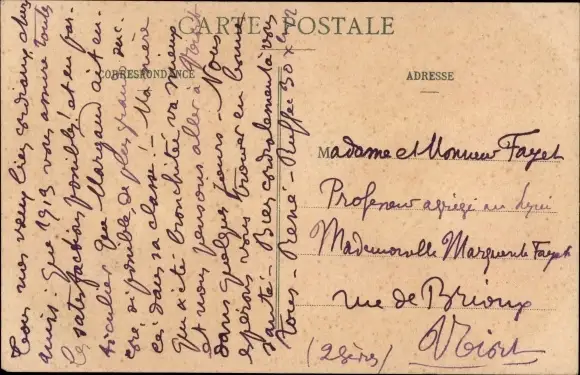 CARTE POSTALE
CORRESPONDANCE
ADRESSE
Tous nos vœux très cordiaux chers
amis. Que 1913 vous assure toutes
les satisfactions possibles et en par-
ticulier que Margaud ait en-
core si possible, de plus grands suc-
cès dans sa classe. - Ma mère
qui a été bronchitée va mieux
et nous pensons aller à
dans quelques jours. Nous
espérons vous trouver en bonne
santé. - Bien cordialement à vous
Tous - René - Ruffec 30
Madame et Monsieur Fayet
Professeur agrégé au Lycée
Mademoiselle Marguerite Fayet
rue de Brioux
Niort
(2 Sèvres)